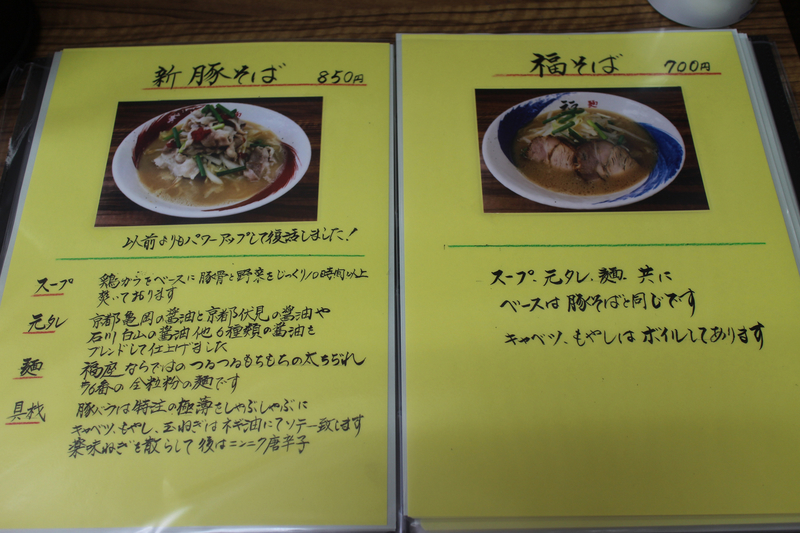 新 豚そば 850円
以前よりもパワーアップして復活しました!
スープ 鶏がらをベースに豚骨と野菜をじっくり10時間以上
炊いております
元タレ 京都亀岡の醤油と京都伏見の醤油や
石川白山の醤油他6種類の醤油を
ブレンドして仕上げました
麺 福座ならではのつるつるもちもちの太ちぢれ
16番の全粒粉の麺です
具材 豚バラは特注の極薄をしゃぶしゃぶに
キャベツ、もやし、玉ねぎはネギ油にてソテー致します
薬味ねぎを散らして後はニンニク唐辛子
福そば 700円
福
スープ、元タレ、麺 共に
ベースは豚そばと同じです
キャベツ、もやしはボイルしてあります